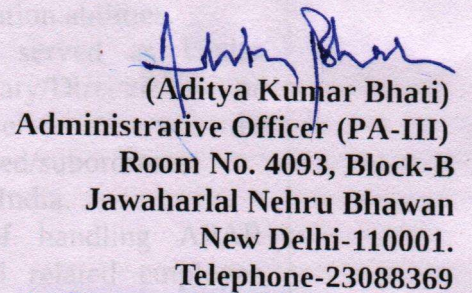 Aditya Bhati
(Aditya Kumar Bhati)
Administrative Officer (PA-III)
Room No. 4093, Block-B
Jawaharlal Nehru Bhawan
New Delhi-110001.
Telephone-23088369